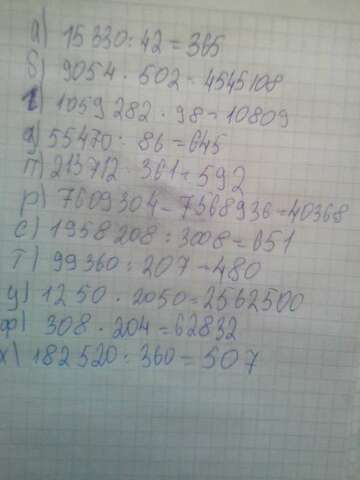 а) 15330:42=365
б) 9054·502=4545108
г) 1059282·98=10809
д) 55470:86=645
п) 213712·361=592
р) 7609304-7568936=40368
с) 1958208:3008=651
т) 99360:207=480
у) 1250·2050=2562500
ф) 308·204=62832
х) 182520:360=507